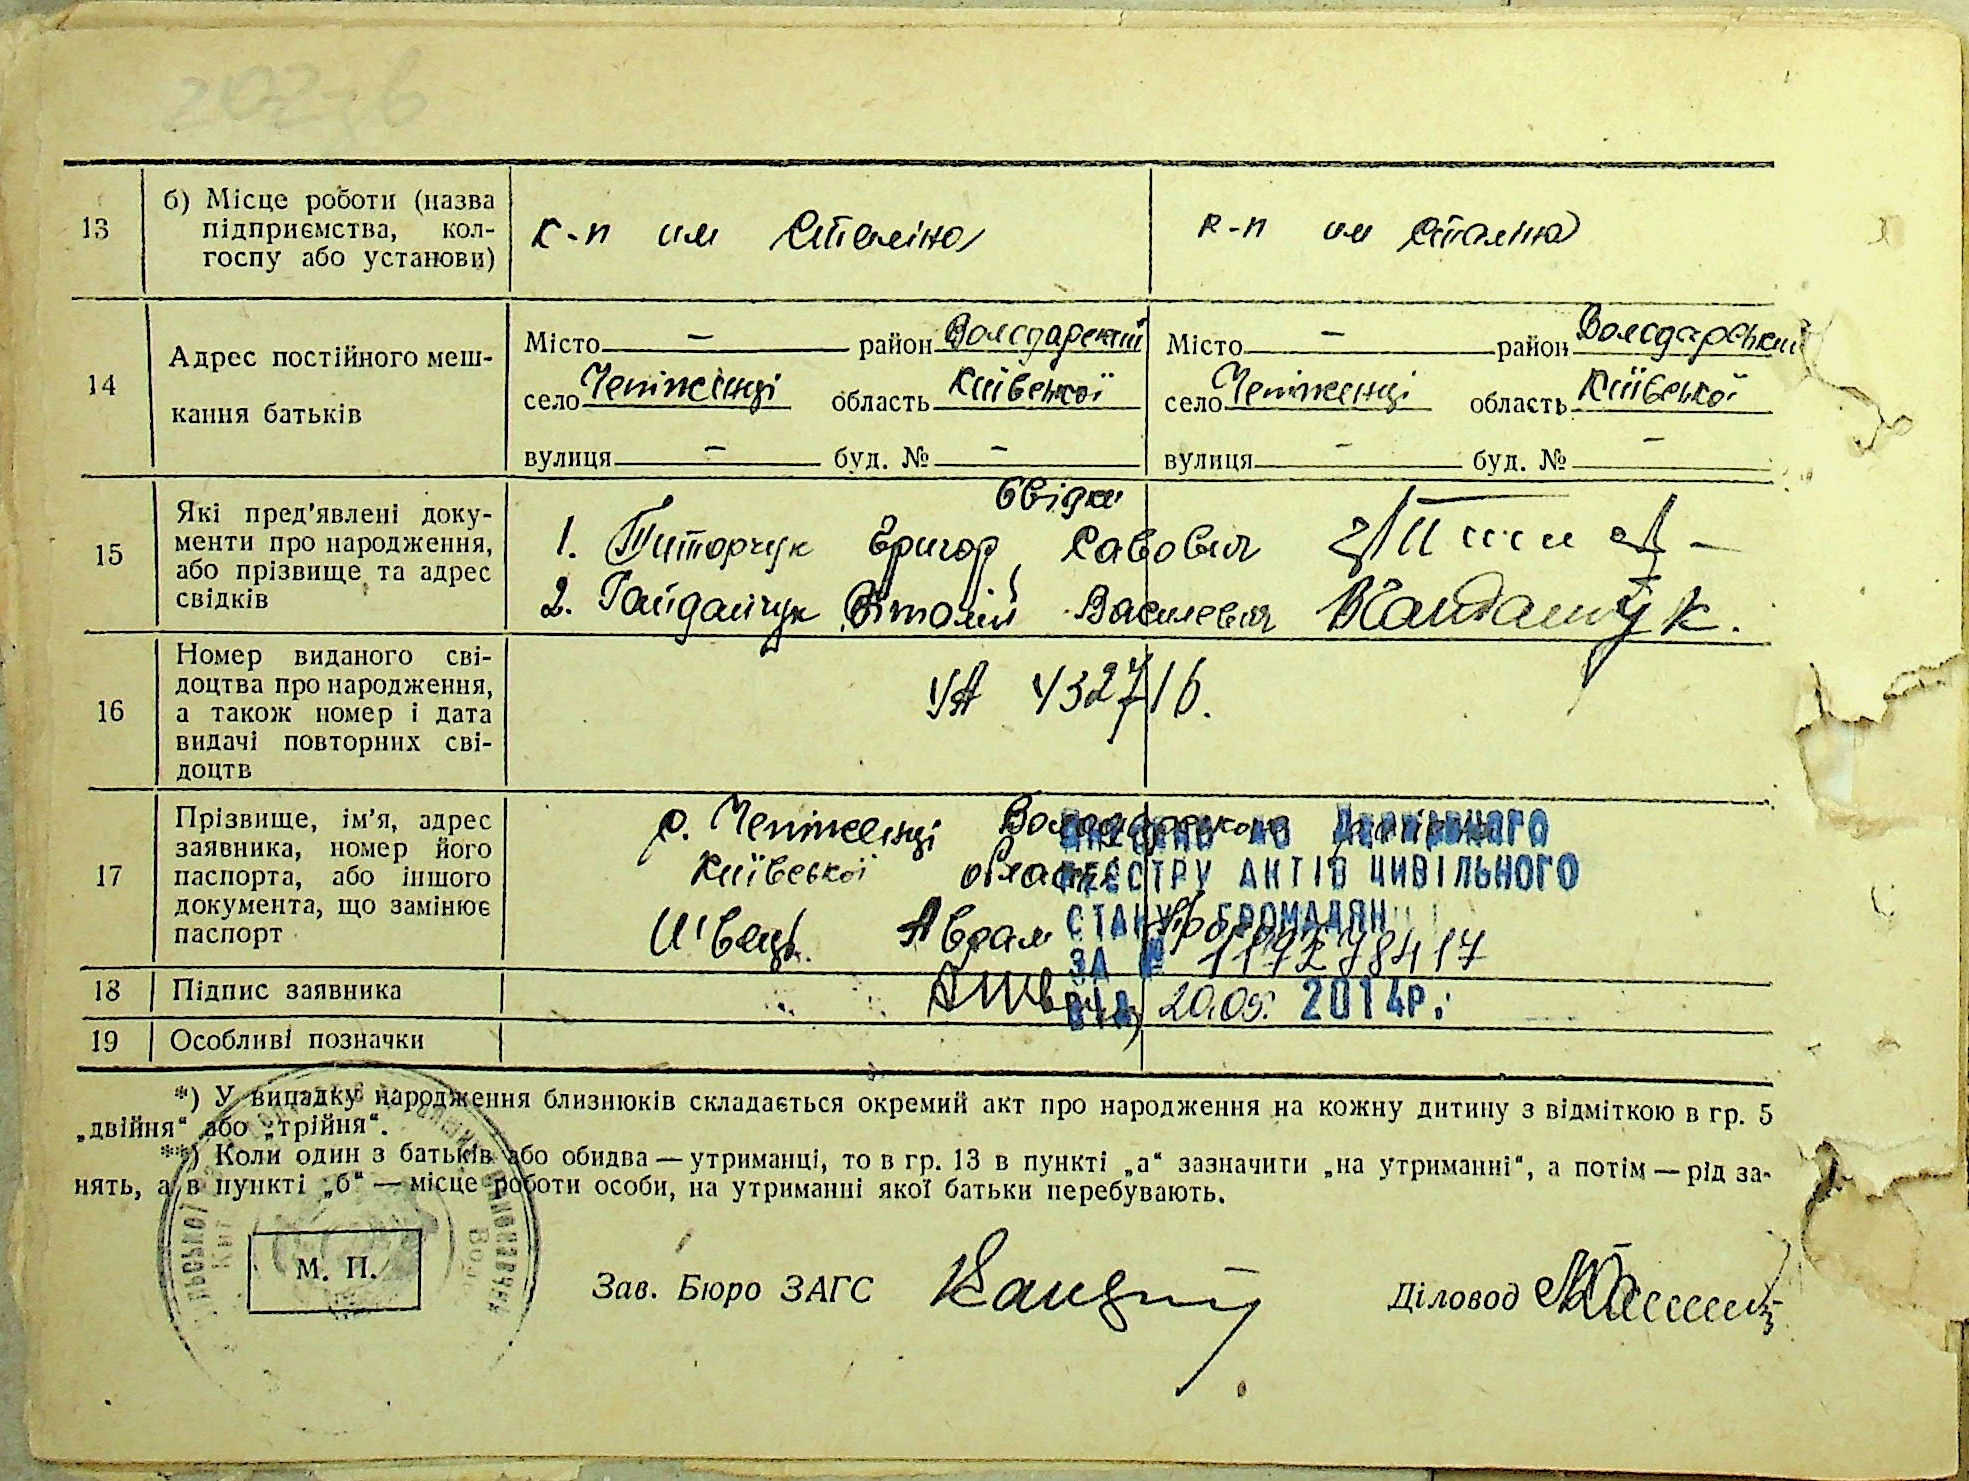 13
б) Місце роботи (назва
підприємства, кол-
госпу або установи)
к-п им Сталіна
к-п им Сталіна
14
Адрес постійного меш-
кання батьків
Місто — район Володарський
село Чепіжинці область Київської
вулиця — буд. № —
Місто — район Володарський
село Чепіжинці область Київської
вулиця — буд. № —
15
Які пред'явлені доку-
менти про народження,
або прізвище та адрес
свідків
Свідки
1. Титорчук Григор Савович
2. Гайдайчук Віталій Василевич
16
Номер виданого сві-
доцтва про народження,
а також номер і дата
видачі повторних сві-
доцтв
УА 432716.
17
Прізвище, ім'я, адрес
заявника, номер його
паспорта, або іншого
документа, що замінює
паспорт
с. Чепіжинці Володарського
Київської області
Швець Аврам
ВНЕСЕНО ДО ДЕРЖАВНОГО
РЕЄСТРУ АКТІВ ЦИВІЛЬНОГО
СТАНУ ГРОМАДЯН
ЗА № 119278417
ВІД 20.05. 2014р.
18
Підпис заявника
19
Особливі позначки
*) У випадку народження близнюків складається окремий акт про народження на кожну дитину з відміткою в гр. 5
„двійня“ або „трійня“.
**) Коли один з батьків або обидва — утриманці, то в гр. 13 в пункті „а“ зазначити „на утриманні“, а потім — рід за-
нять, а в пункті „б“ — місце роботи особи, на утриманні якої батьки перебувають.
М. П.
Зав. Бюро ЗАГС
Діловод